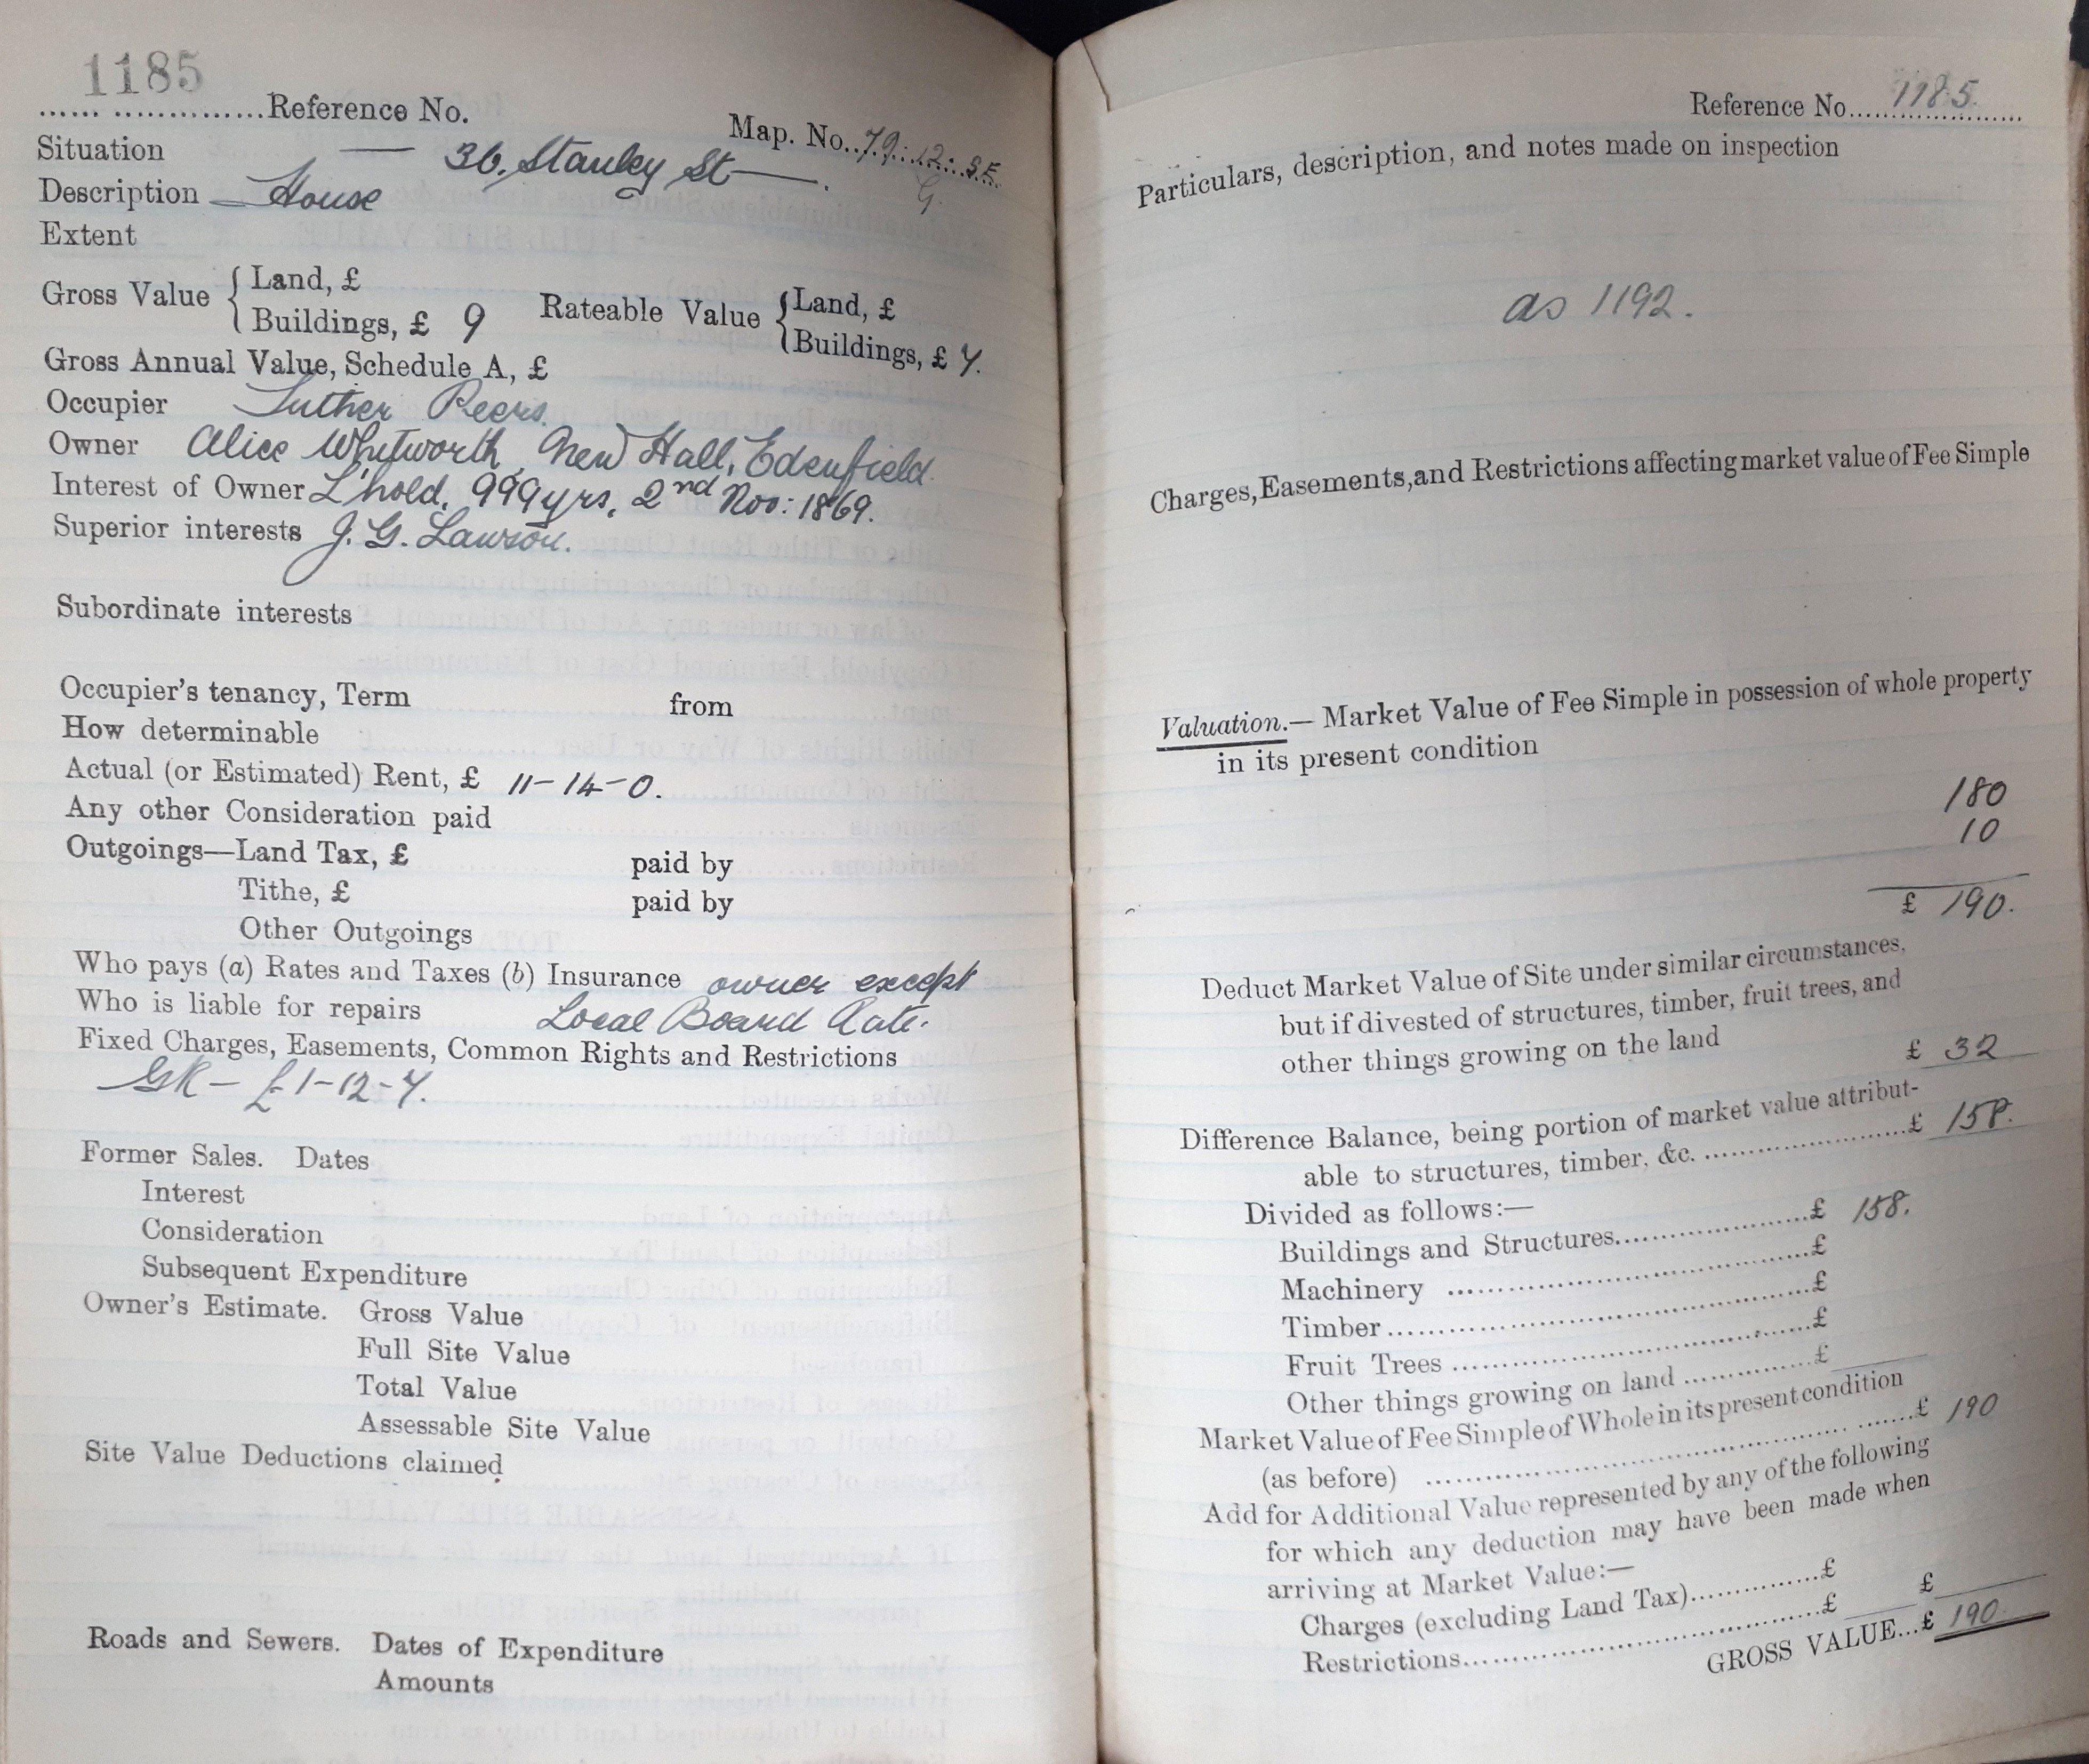 1185
...... ..............Reference No.
Map. No. 79:12:SE.
G.
Situation — 36, Stanley St —.
Description — House
Extent
Gross Value { Land, £
Buildings, £ 9
Rateable Value { Land, £
Buildings, £ 7.
Gross Annual Value, Schedule A, £
Occupier Luther Peers.
Owner Alice Whitworth, New Hall, Edenfield.
Interest of Owner L'hold, 999 yrs, 2nd Nov: 1869.
Superior interests J. G. Lawson.
Subordinate interests
Occupier's tenancy, Term from
How determinable
Actual (or Estimated) Rent, £ 11-14-0.
Any other Consideration paid
Outgoings—Land Tax, £ paid by
Tithe, £ paid by
Other Outgoings
Who pays (a) Rates and Taxes (b) Insurance owner except
Who is liable for repairs Local Board Rate.
Fixed Charges, Easements, Common Rights and Restrictions
GR — £1-12-7.
Former Sales. Dates
Interest
Consideration
Subsequent Expenditure
Owner's Estimate. Gross Value
Full Site Value
Total Value
Assessable Site Value
Site Value Deductions claimed
Roads and Sewers. Dates of Expenditure
Amounts
Reference No. 1185.
Particulars, description, and notes made on inspection
as 1192.
Charges, Easements, and Restrictions affecting market value of Fee Simple
Valuation.— Market Value of Fee Simple in possession of whole property
in its present condition
180
10
£ 190.
Deduct Market Value of Site under similar circumstances,
but if divested of structures, timber, fruit trees, and
other things growing on the land £ 32
Difference Balance, being portion of market value attribut-
able to structures, timber, &c. ........................£ 158.
Divided as follows:—
Buildings and Structures........................£ 158.
Machinery ........................£
Timber........................£
Fruit Trees ........................£
Other things growing on land ..............£
Market Value of Fee Simple of Whole in its present condition
(as before) ........................£ 190
Add for Additional Value represented by any of the following
for which any deduction may have been made when
arriving at Market Value:—
Charges (excluding Land Tax)..............£
Restrictions........................£ £
GROSS VALUE...£ 190.